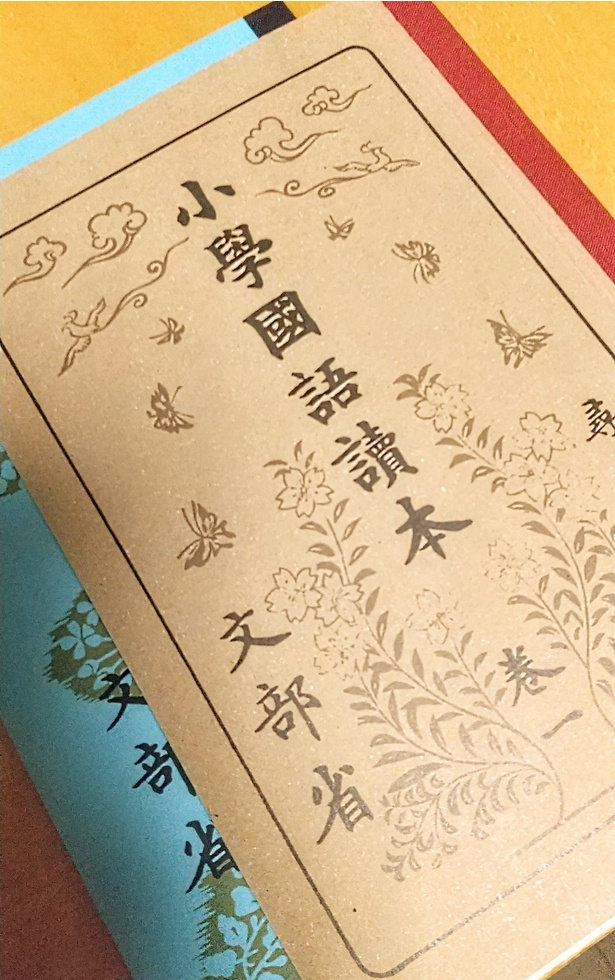 尋
小學國語讀本
卷一
文部省
文部省